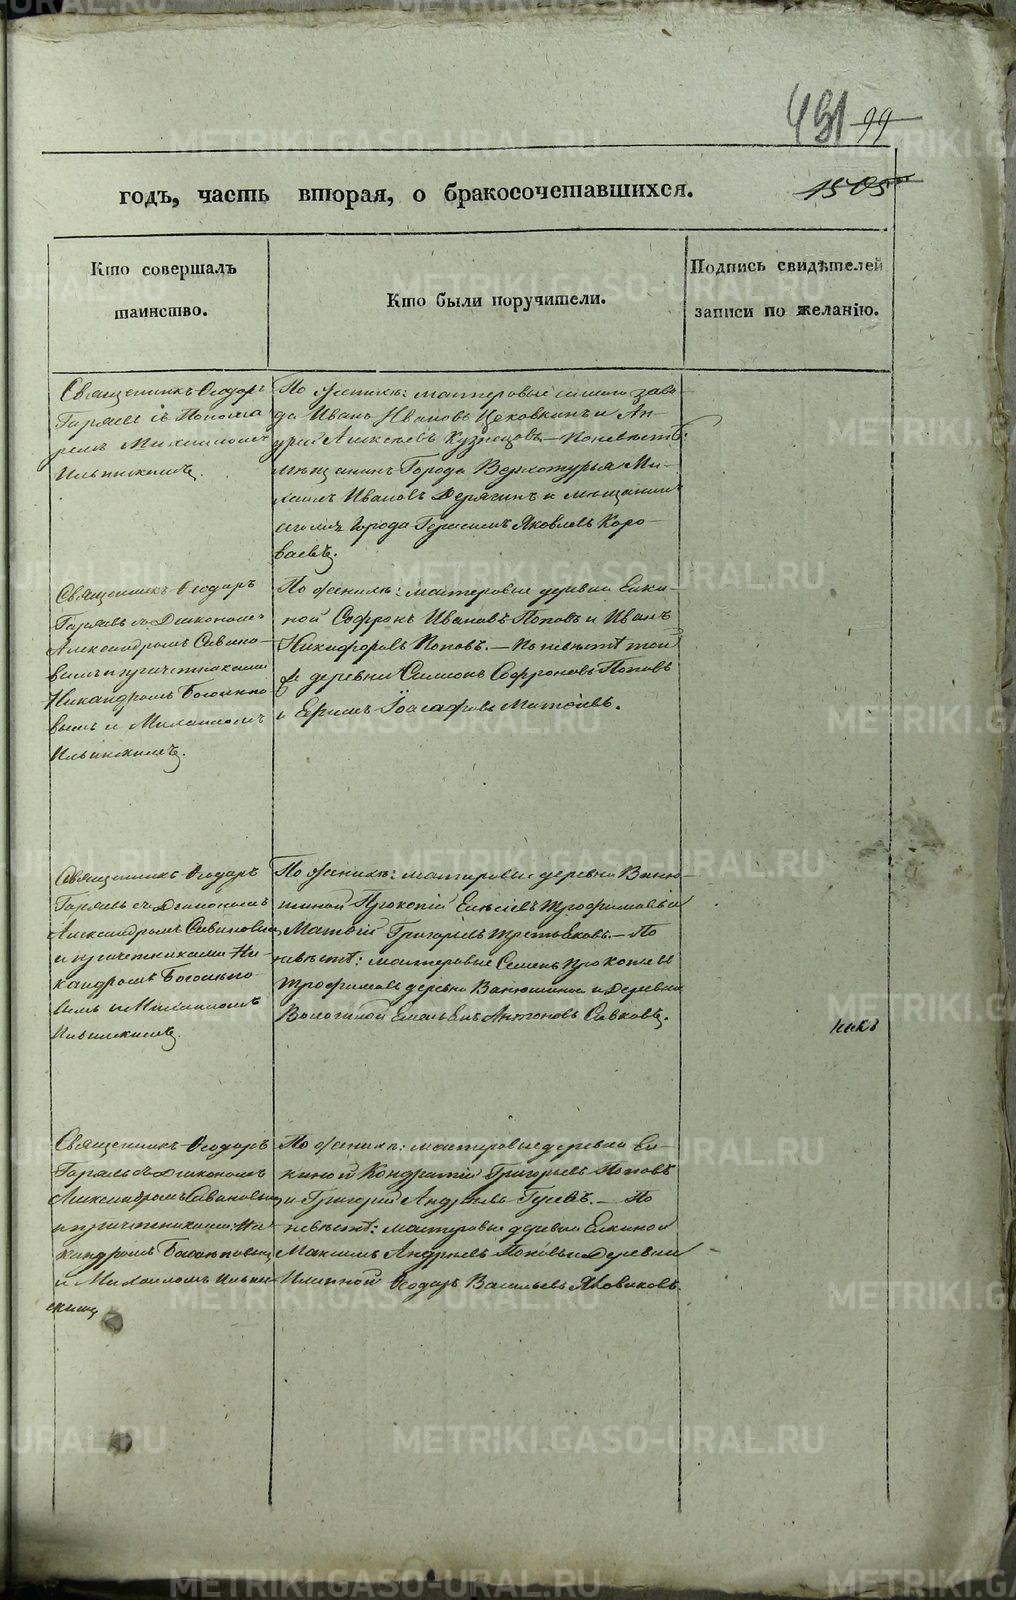 491 99
1505
годъ, часть вторая, о бракосочетавшихся.
Кто совершалъ
таинство.
Кто были поручители.
Подпись свидѣтелей
записи по желанію.
Священникъ Ѳеодоръ
Гаряевъ съ Понома
ремъ Михаиломъ
Ильинскимъ.
По женихѣ: мастеровые заво
да Иванъ Ивановъ и Ан-
дрей Алексѣевъ Кузнецовъ – По невѣстѣ:
мѣщанинъ Города Верхотурья Ми-
хаилъ Ивановъ Дерягинъ и мѣщанинъ
Города Герасимъ Яковлевъ Коро-
ваевъ.
Священникъ Ѳеодоръ
Гаряевъ съ Діакономъ
Александромъ Савино-
вымъ и причетниками
Никандромъ
и Михаиломъ
Ильинскимъ.
По женихѣ: мастеровые деревни Елки-
ной Софронъ Ивановъ Поповъ и Иванъ
Никифоровъ Поповъ. – По невѣстѣ той
деревни Симионъ Софроновъ Поповъ
и Ефимъ Іоасафовъ
Священникъ Ѳеодоръ
Гаряевъ съ Діакономъ
Александромъ Савиновымъ
и причетниками Ни-
кандромъ
и Михаиломъ
Ильинскимъ.
По женихѣ: мастеровые деревни Ваню-
шиной Прокопій Елисѣевъ Трофимовъ и
Матвій Григорьевъ Третьяковъ. – По
невѣстѣ: мастеровые Семенъ Прокопьевъ
Трофимовъ деревни Ванюшиной и Деревни
Вологиной Емельянъ Антоновъ Савковъ.
Священникъ Ѳеодоръ
Гаряевъ съ Діакономъ
Александромъ Савиновымъ
и причетниками Ни-
кандромъ
и Михаиломъ Ильин-
скимъ
По женихѣ: мастеровые деревни Ел-
киной Кондратій Григорьевъ Поповъ
и Григорій Андреевъ Гусевъ. – По
невѣстѣ: мастеровые деревни Елкиной
Максимъ Андреевъ Поповъ и Деревни
Ѳеодоръ Васильевъ
METRIKI.GASO-URAL.RU